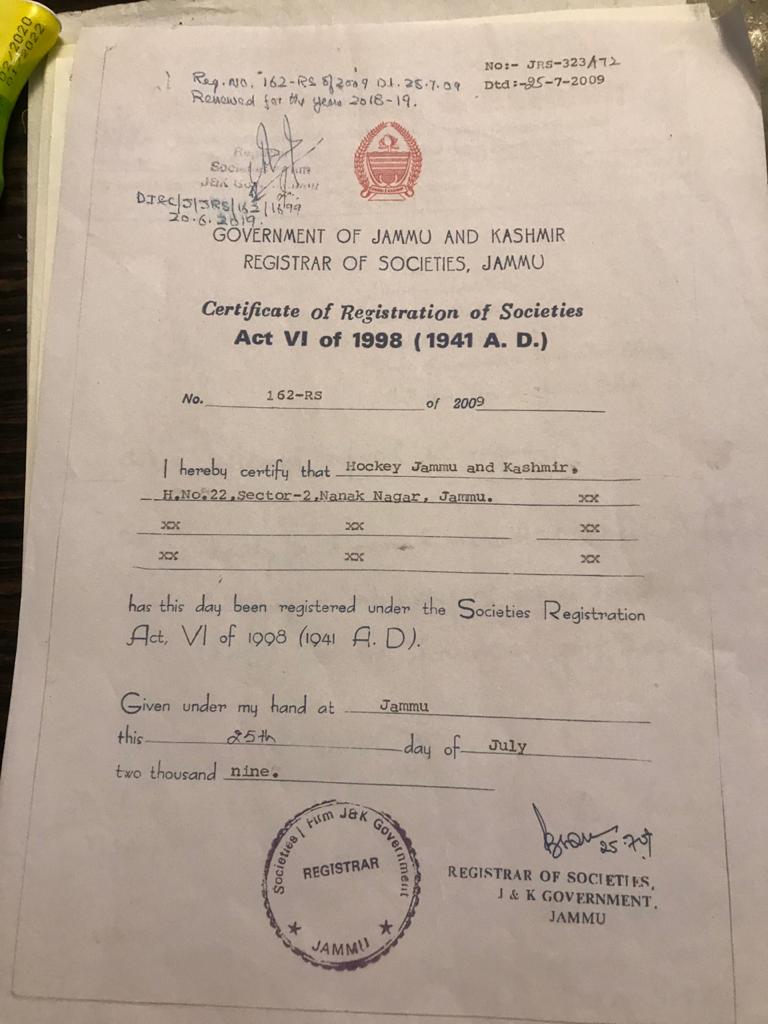 02/2020
01/2022
Reg. No. 162-RS of 2009 Dt. 25.7.09
Renewed for the years 2018-19.
No:- JRS-323
Dtd:-25-7-2009
J&K
20.6.2019.
GOVERNMENT OF JAMMU AND KASHMIR
REGISTRAR OF SOCIETIES, JAMMU
Certificate of Registration of Societies
Act VI of 1998 (1941 A. D.)
No. 162-RS of 2009
I hereby certify that Hockey Jammu and Kashmir.
H.No.22,Sector-2,Nanak Nagar, Jammu. xx
xx xx xx
xx xx xx
has this day been registered under the Societies Registration
Act, VI of 1998 (1941 A. D).
Given under my hand at Jammu
this 25th day of July
two thousand nine.
Societies / Firm J&K Government
REGISTRAR
JAMMU
25.7.09
REGISTRAR OF SOCIETIES,
J & K GOVERNMENT,
JAMMU